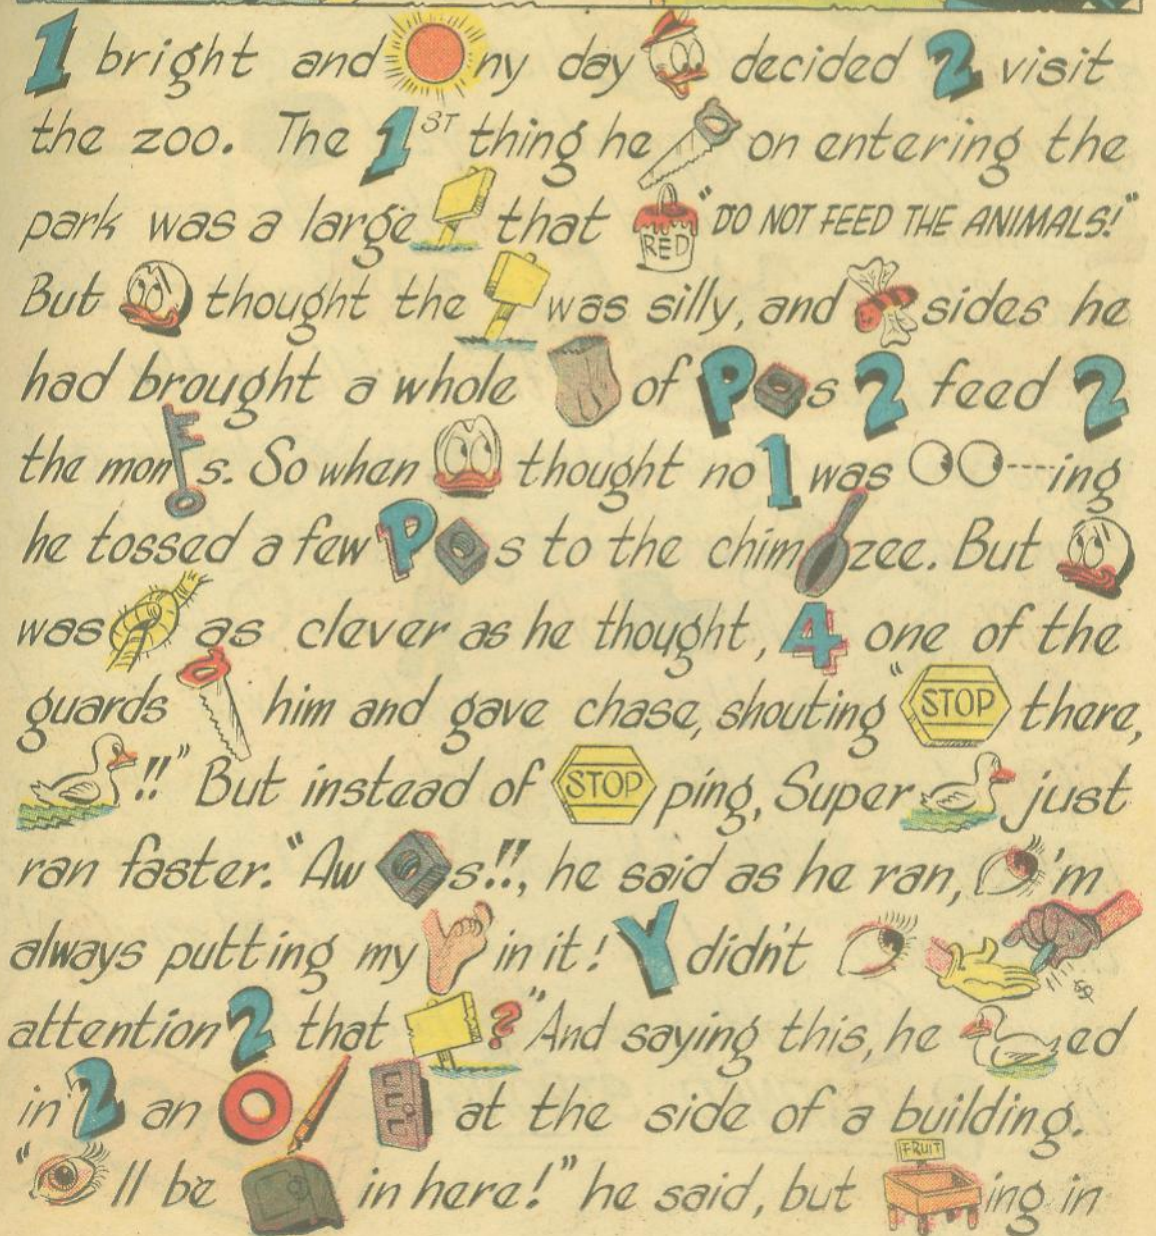 1 bright and ny day decided 2 visit
the zoo. The 1ST thing he on entering the
park was a large that RED "DO NOT FEED THE ANIMALS!"
But thought the was silly, and sides he
had brought a whole of P s 2 feed 2
the mon s. So when thought no 1 was ----ing
he tossed a few P s to the chim zee. But
was as clever as he thought, 4 one of the
guards him and gave chase, shouting "STOP there,
!!" But instead of STOP ping, Super just
ran faster. "Aw s!!, he said as he ran, 'm
always putting my in it! Y didn't $
attention 2 that ?" And saying this, he ed
in 2 an O at the side of a building.
" ll be in here!" he said, but FRUIT ing in